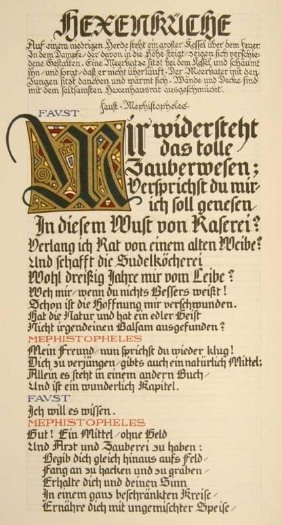 HEXENKÜCHE
Auf einem niedrigen Herde steht ein großer Kessel über dem Feuer.
In dem Dampfe, der davon in die Höhe steigt, zeigen sich verschie-
dene Gestalten. Eine Meerkatze sitzt bei dem Kessel und schäumt
ihn, und sorgt, daß er nicht überläuft. Der Meerkater mit den
Jungen sitzt daneben und wärmt sich. Wände und Decke sind
mit dem seltsamsten Hexenhausrat ausgeschmückt.
Faust. Mephistopheles.
FAUST
Mir widersteht
das tolle
Zauberwesen;
Versprichst du mir,
ich soll genesen,
In diesem Wust von Raserei?
Verlang ich Rat von einem alten Weibe?
Und schafft die Sudelköcherei
Wohl dreißig Jahre mir vom Leibe?
Weh mir, wenn du nichts Bessers weißt!
Schon ist die Hoffnung mir verschwunden.
Hat die Natur und hat ein edler Geist
Nicht irgendeinen Balsam ausgefunden?
MEPHISTOPHELES
Mein Freund, nun sprichst du wieder klug!
Dich zu verjüngen, gibts auch ein natürlich Mittel;
Allein es steht in einem andern Buch,
Und ist ein wunderlich Kapitel.
FAUST
Ich will es wissen.
MEPHISTOPHELES
Gut! Ein Mittel, ohne Geld
Und Arzt und Zauberei zu haben:
Begib dich gleich hinaus aufs Feld,
Fang an zu hacken und zu graben,
Erhalte dich und deinen Sinn
In einem ganz beschränkten Kreise,
Ernähre dich mit ungemischter Speise,